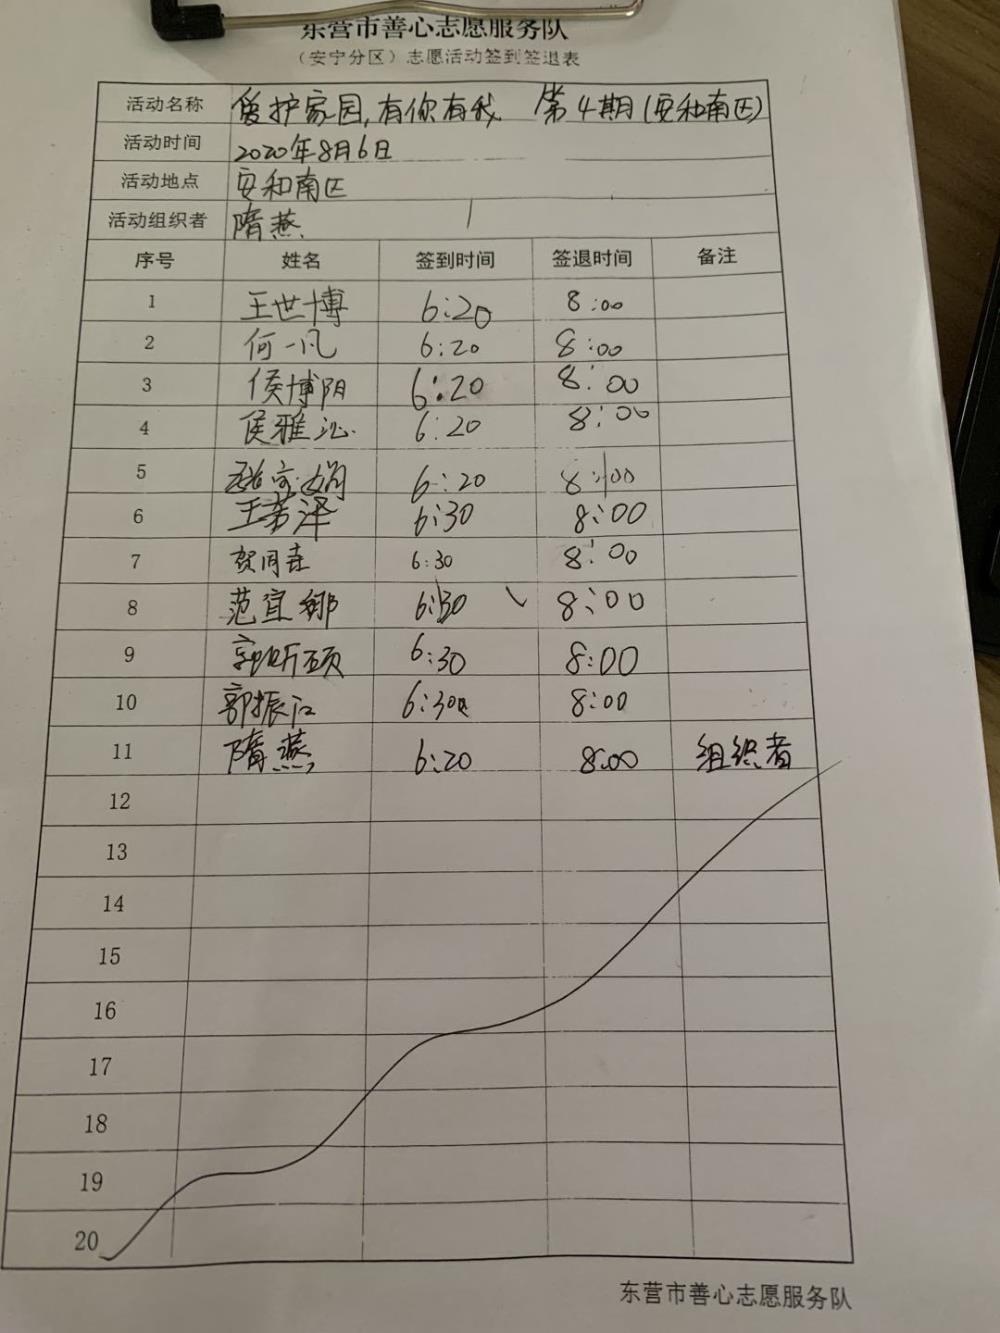 东营市善心志愿服务队
（安宁分区）志愿活动签到签退表
活动名称 爱护家园,有你有我 第4期(安和南区)
活动时间 2020年8月6日
活动地点 安和南区
活动组织者 隋燕
序号 姓名 签到时间 签退时间 备注
1 王世博 6:20 8:00
2 何一凡 6:20 8:00
3 侯博阳 6:20 8:00
4 侯雅沁 6:20 8:00
5 6:20 8:00
6 王若泽 6:30 8:00
7 6:30 8:00
8 范宜娜 6:30 8:00
9 6:30 8:00
10 郭振江 6:30 8:00
11 隋燕 6:20 8:00 组织者
12
13
14
15
16
17
18
19
20
东营市善心志愿服务队